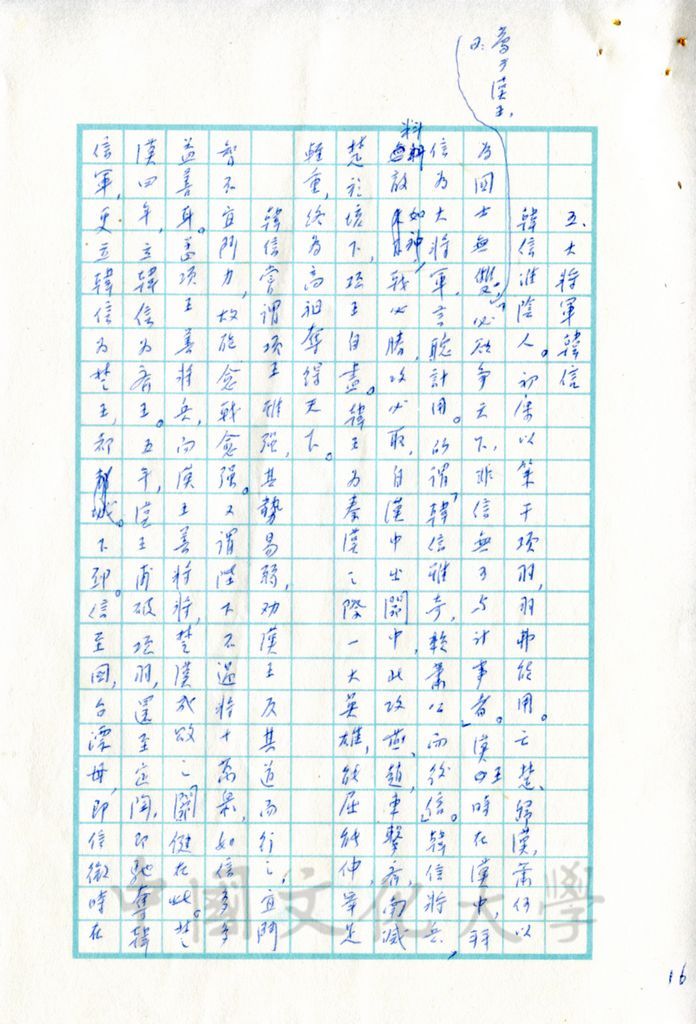 薦于漢王,
曰:
五、大將軍韓信
韓信淮陰人。初屢以策干項羽,羽弗能用。亡楚歸漢,蕭何以
為國士無雙,「必欲爭天下,非信無可与計事者。」漢王時在漢中,拜
信為大將軍,言聽計用。所謂「韓信雖奇,賴蕭公而後信」。韓信將兵,
料敵如神,戰必勝,攻必取,自漢中出關中,北攻燕、趙,東擊齊,南滅
楚於垓下,項王自盡。韓王為秦漢之際一大英雄,能屈能伸,舉足
輕重,終為高祖奪得天下。
韓信嘗謂項王雖強,其勢易弱,勸漢王反其道而行之,宜鬥
智不宜鬥力,故能愈戰愈強。又謂陛下不過將十萬眾,如信多多
益善耳。蓋項王善將兵,而漢王善將將,楚漢成敗之關鍵在此。楚
漢四年,立韓信為齊王。五年,漢王甫破項羽,還至定陶,即馳奪韓
信軍,更立韓信為楚王,都下邳。信至國,召漂母,即信微時在
中國文化大學
16